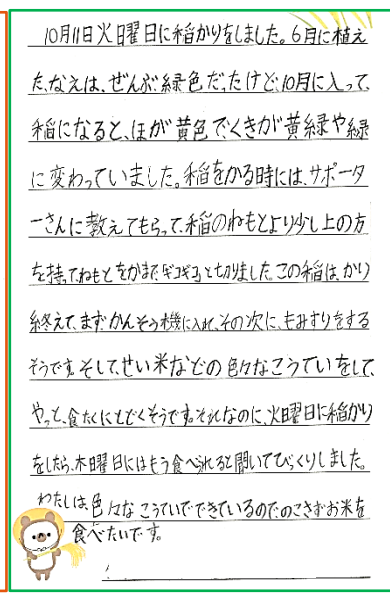 10月11日火曜日に稲かりをしました。6月に植え
た、なえは、ぜんぶ緑色だったけど、10月に入って、
稲になると、ほが黄色で、くきが黄緑や緑
に変わっていました。稲をかる時には、サポータ
ーさんに教えてもらって、稲のねもとより少し上の方
を持って、ねもとをかまで、「ギコギコ」と切りました。この稲は、かり
終えて、まず、かんそう機に入れ、その次に、もみすりをする
そうです。そして、せい米などの色々なこうていをして、
やっと、食たくにとどくそうです。それなのに、火曜日に稲かり
をしたら、木曜日にはもう食べられると聞いてびっくりしました。
わたしは、色々なこうていでできているので、のこさずお米を
食べたいです。